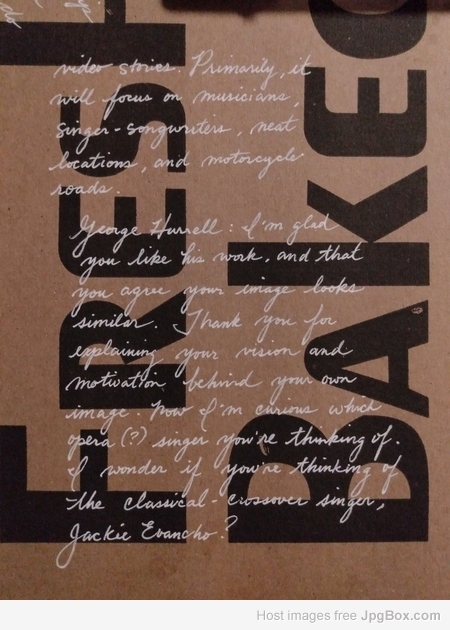 video stories. Primarily, it
will focus on musicians,
singer-songwriters, neat
locations, and motorcycle
roads.
George Hurrell: I'm glad
you like his work, and that
you agree your image looks
similar. Thank you for
explaining your vision and
motivation behind your own
image. Now I'm curious which
opera (?) singer you're thinking of.
I wonder if you're thinking of
the classical-crossover singer,
Jackie Evancho?
FRES
BAKED
Host images free JpgBox.com